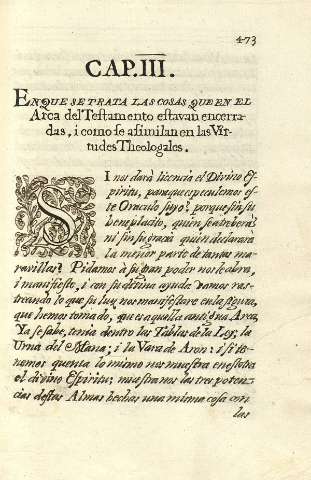 473
CAP. III.
EN QUE SE TRATA LAS COSAS QUE EN EL
Arca del Testamento estavan encerra-
das, i como se asimilan en las Vir-
tudes Theologales.
SI nos darà licencia el Divino Es-
piritu, para que especulemos es-
te Oraculo suyo? porque sin su
beneplacito, quien se atreberà?
ni sin su gracia quien declarara
la menor parte de tantas ma-
ravillas? Pidamos à su gran poder nos le abra,
i manifieste, i con su divina ayuda vamos ras-
treando lo que su luz nos manifestare en la figura,
que hemos tomado, que es aquella antigua Arca.
Ya se sabe, tenia dentro las Tablas de la Ley; la
Urna del Mana; i la Vara de Aron: i si te-
nemos quenta lo mismo nos muestra en esotra
el divino Espiritu; muestranos las tres poten-
cias destas Almas hechas una misma cosa con
las